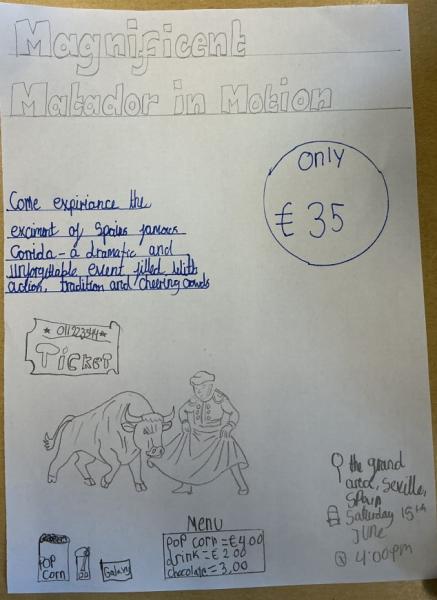 Magnificent
Matador in Motion
Only
€ 35
Come expiriance the
exciment of Spains famous
Corrida - a dramatic and
unforgettable event filled with
action, tradition and cheering crowds
Ticket
the grand
area, Seville,
Spain
Saturday 15th
June
4:00pm
Menu
POP CORN = €4.00
drink = € 2.00
chocolate = 3.00
POP
CORN
Galaxy